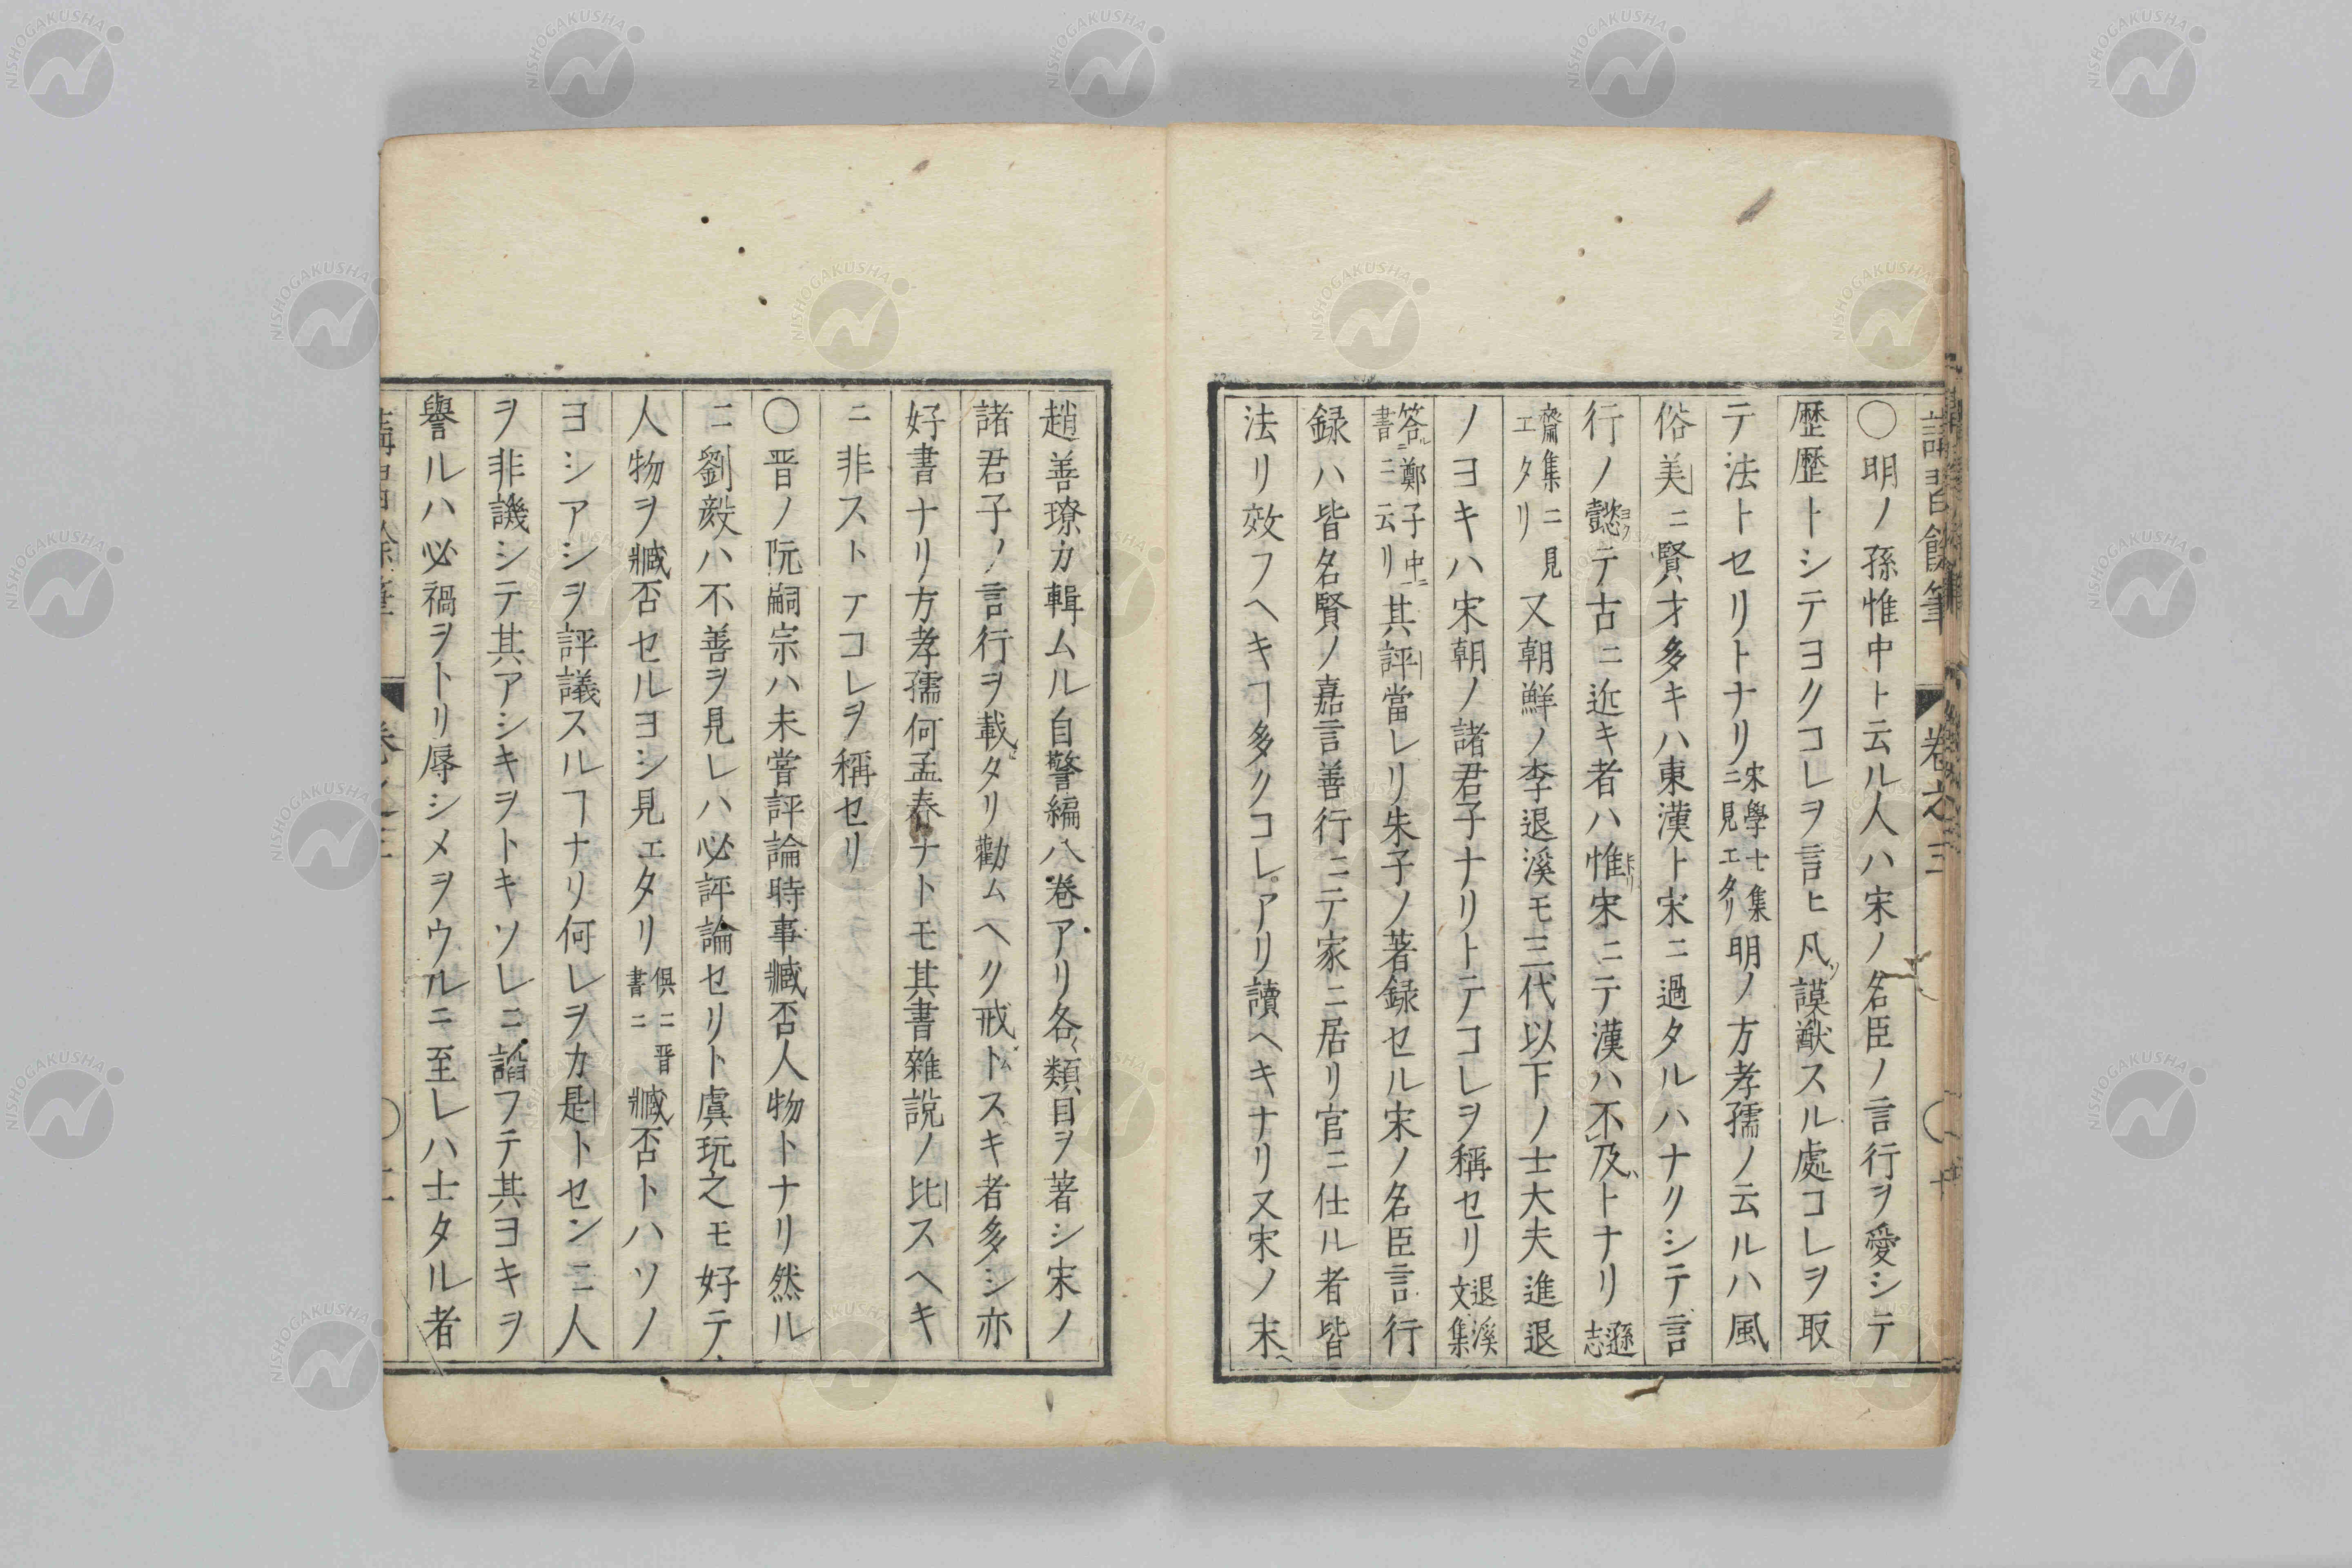 講習餘筆 卷之三
〇明ノ孫惟中ト云ル人ハ宋ノ名臣ノ言行ヲ愛シテ
歷歷トシテヨクコレヲ言ヒ凡ソ謨猷スル處コレヲ取
テ法トセリトナリ宋學士集ニ見エタリ明ノ方孝孺ノ云ルハ風
俗美ニ賢才多キハ東漢ト宋ニ過タルハナクシテ言
行ノ懿ヨクテ古ニ近キ者ハ惟宋ニテ漢ハ不及トナリ遜志
齋集ニ見エタリ又朝鮮ノ李退溪モ三代以下ノ士大夫進退
ノヨキハ宋朝ノ諸君子ナリトテコレヲ稱セリ退溪文集
答ル鄭子中ニ書ニ云リ其評當レリ朱子ノ著録セル宋ノ名臣言行
録ハ皆名賢ノ嘉言善行ニテ家ニ居リ官ニ仕ル者皆
法リ效フヘキヿ多クコレアリ讀ヘキナリ又宋ノ末
趙善璙カ輯ムル自警編八卷アリ各類目ヲ著シ宋ノ
諸君子ノ言行ヲ載タリ勸ムヘク戒トスキ者多シ亦
好書ナリ方孝孺何孟春ナトモ其書雜説ノ比スヘキ
ニ非ストテコレヲ稱セリ
〇晋ノ阮嗣宗ハ未嘗評論時事臧否人物トナリ然ル
ニ劉毅ハ不善ヲ見レハ必評論セリト虞玩之モ好テ
人物ヲ臧否セルヨシ見エタリ倶ニ晋書ニ臧否トハソノ
ヨシアシヲ評議スルヿナリ何レヲカ是トセンニ人
ヲ非譏シテ其アシキヲトキソレニ諂フテ其ヨキヲ
譽ルハ必禍ヲトリ辱シメヲウルニ至レハ士タル者
NISHOGAKUSHA